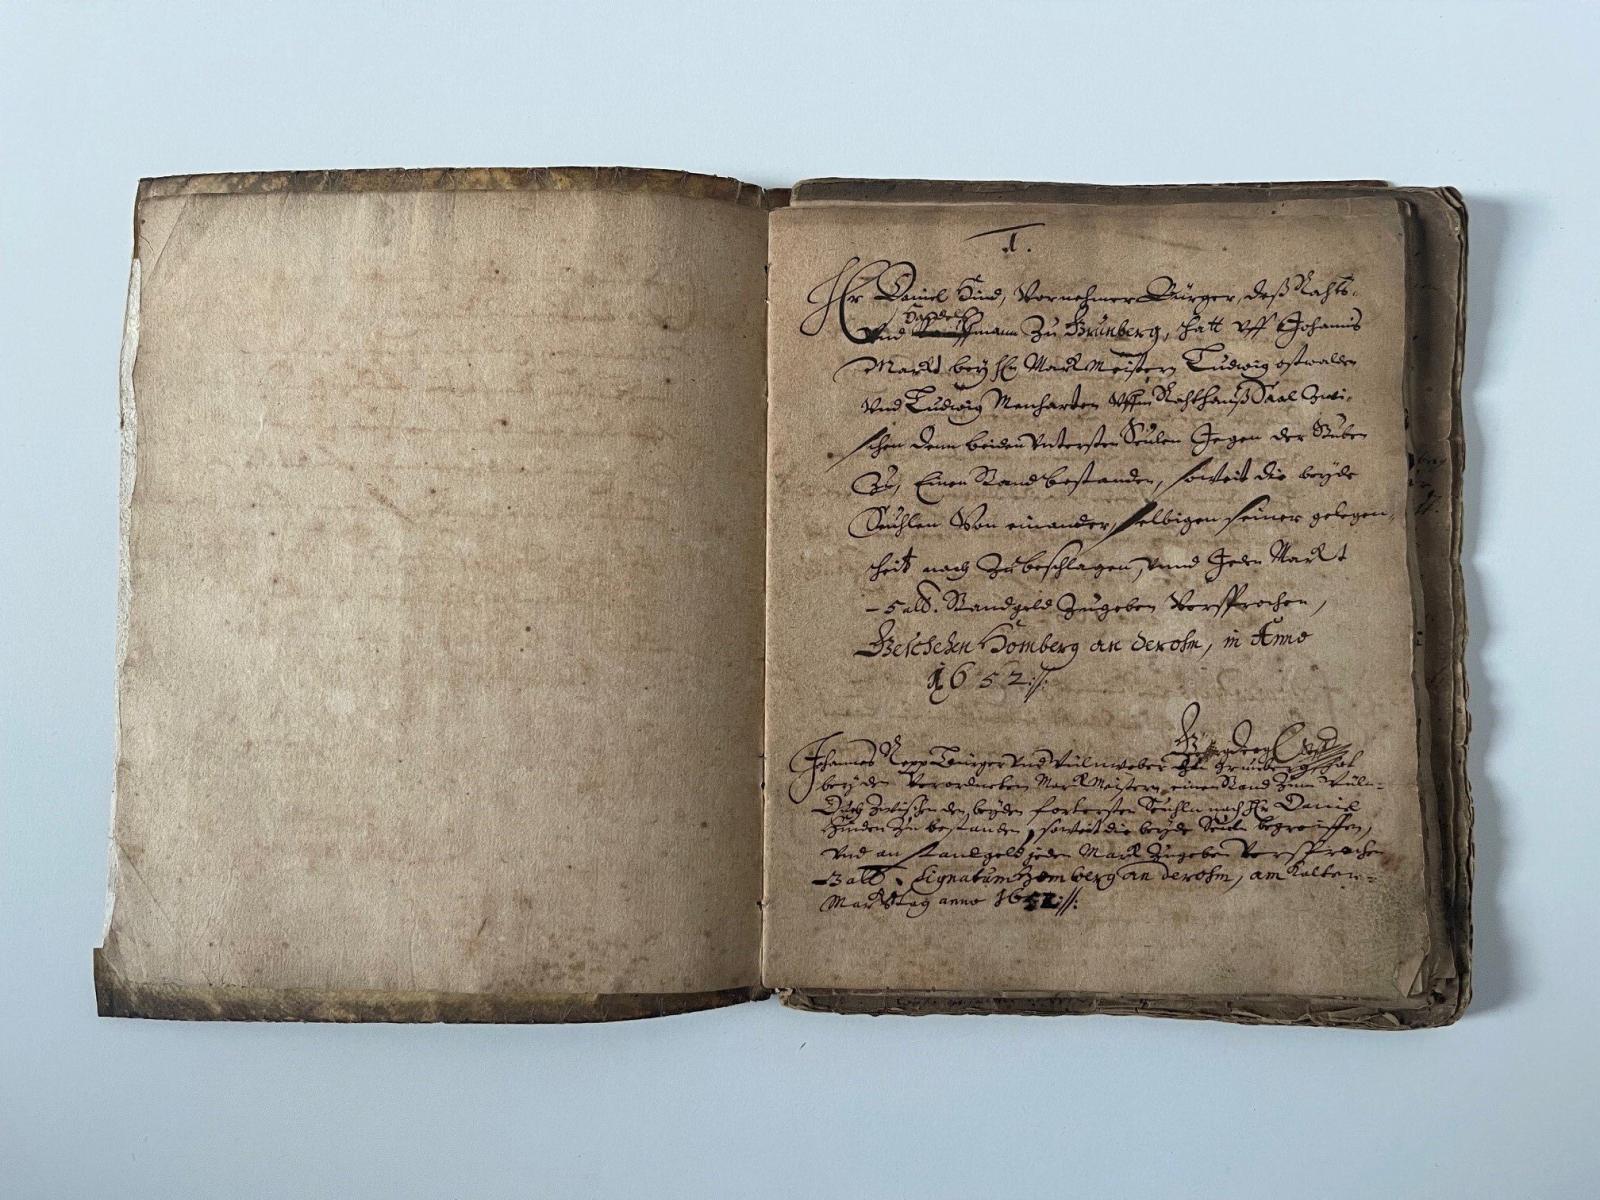 1.
Hr Daniel Hind, Vornehmer Bürger, deß Rahts-
Vnd Handelßmann Zu Grünberg, hatt vff Johannis
Marckt bey Hn Marck Meistern Ludwig ostwalden
Vnd Ludwig Menharten vffm Rahthauß Saal Zwi-
schen denn beiden Vntersten Seulen Gegen der Stuben
Zu, Einen Stand bestanden, soweit die beyde
Seuhlen Von einander, selbigen seiner gelegen-
heit nach Zubeschlagen, vnnd Jeden Marckt
- 5 alb. Standgeld Zugeben Versprochen,
Geschehen Homberg an der ohm, in Anno
1652
Johannes Repp Bürger vnd wüllnweber Zu Grünberg hat
bey den Verordneten Marck Meistern einen Stand Zum wülln-
Duch Zwischen den beyden fordersten Seuhln nach Hn Daniel
Hinden Zu bestanden, soweit die beyde Seuln begreiffen,
vnd an standgeld jeden Marck Zugeben Versprochen
3 alb. Signatum Homberg an der ohm, am Kalten-
Marckstag anno 1652